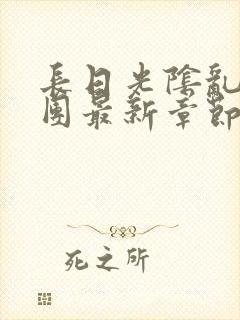 長日光陰亂
團最新章節
死之所